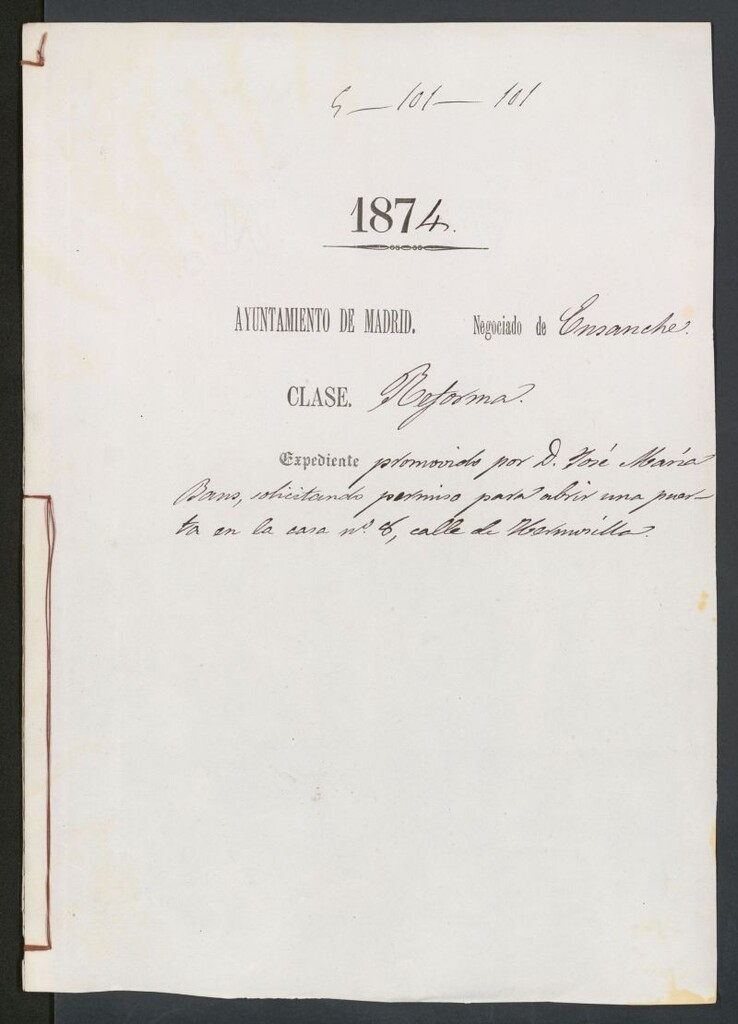 5 — 101 — 101
1874.
AYUNTAMIENTO DE MADRID. Negociado de Ensanche.
CLASE. Reforma.
Expediente promovido por D. José María
Bans, solicitando permiso para abrir una puer-
ta en la casa nº 8, calle de Hermosilla.